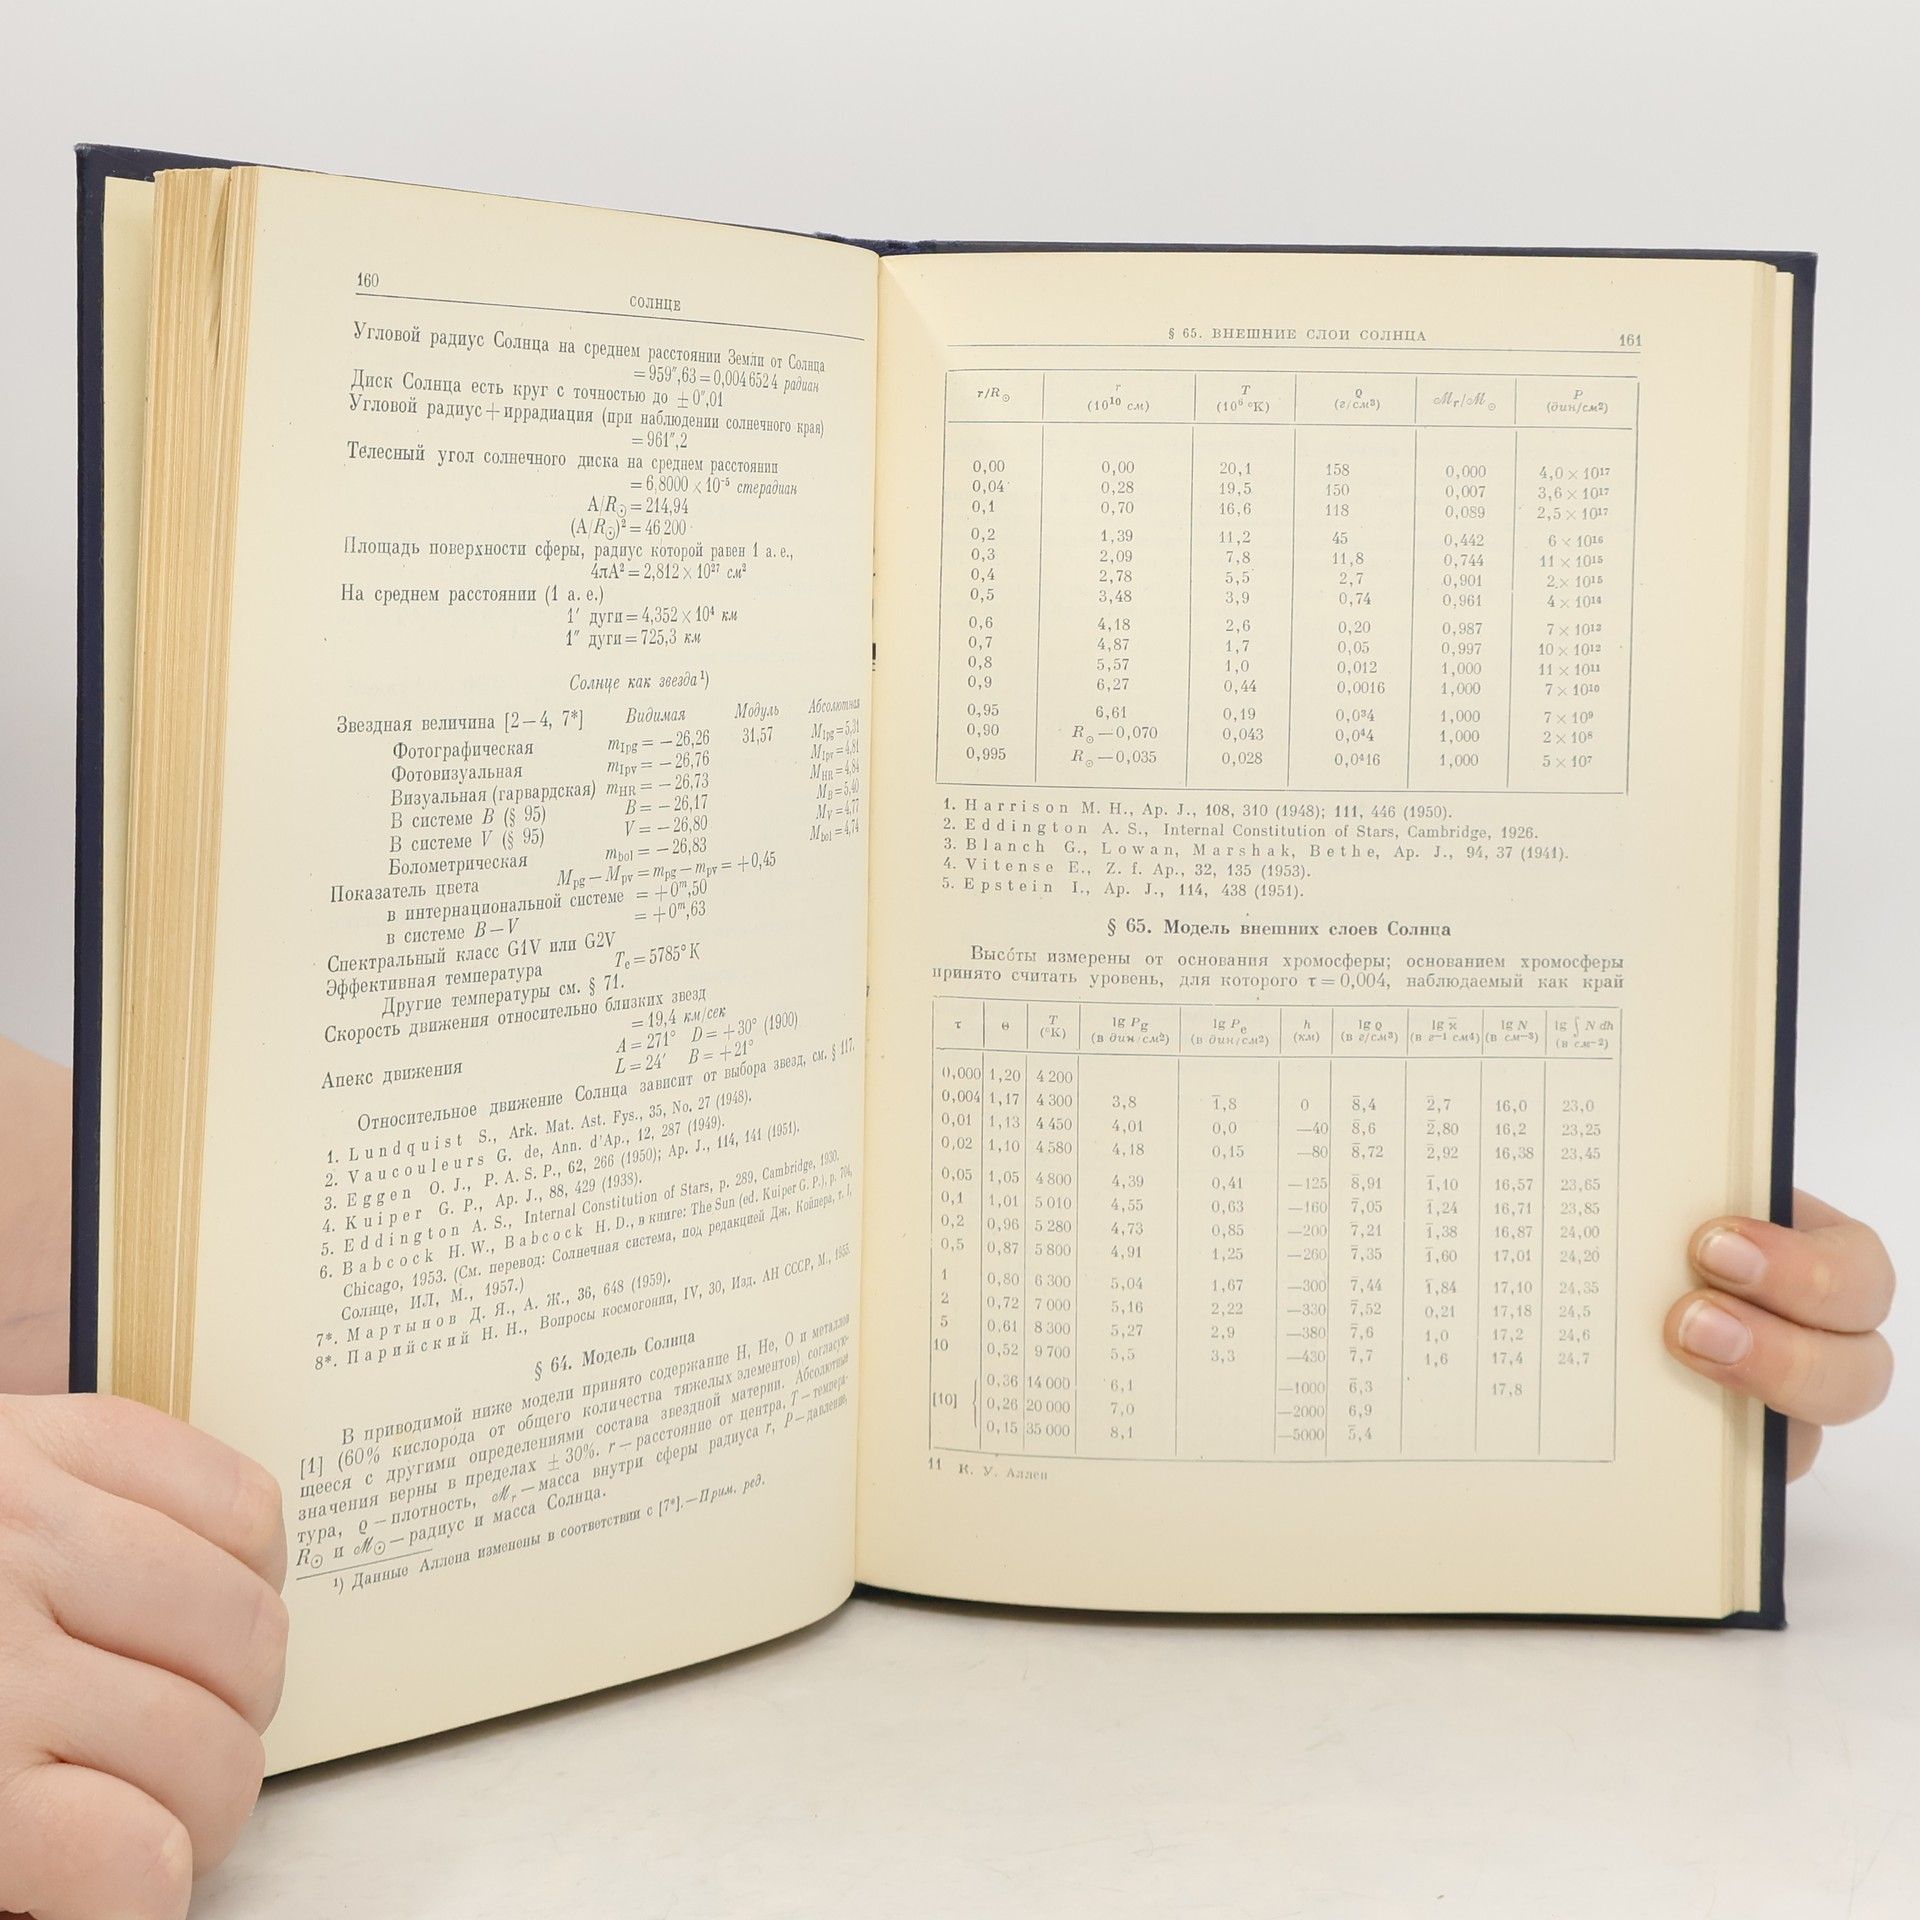 160
СОЛНЦЕ
Угловой радиус Солнца на среднем расстоянии Земли от Солнца
= 959″,63 = 0,0046524 радиан
Диск Солнца есть круг с точностью до ± 0″,01
Угловой радиус + иррадиация (при наблюдении солнечного края)
= 961″,2
Телесный угол солнечного диска на среднем расстоянии
= 6,8000 × 10⁻⁵ стерадиан
A/R☉ = 214,94
(A/R☉)² = 46 200
Площадь поверхности сферы, радиус которой равен 1 а. е.,
4πA² = 2,812 × 10²⁷ см²
На среднем расстоянии (1 а. е.)
1′ дуги = 4,352 × 10⁴ км
1″ дуги = 725,3 км
Солнце как звезда¹)
Звездная величина [2—4, 7*] Видимая Модуль Абсолютная
Фотографическая mIpg = −26,26 31,57 MIpg = 5,31
Фотовизуальная mIpv = −26,76 MIpv = 4,81
Визуальная (гарвардская) mHR = −26,73 MHR = 4,84
В системе B (§ 95) B = −26,17 MB = 5,40
В системе V (§ 95) V = −26,80 MV = 4,77
Болометрическая mbol = −26,83 Mbol = 4,74
Показатель цвета Mpg — Mpv = mpg — mpv = +0,45
в интернациональной системе = +0ᵐ,50
в системе B—V = +0ᵐ,63
Спектральный класс G1V или G2V
Эффективная температура Te = 5785° K
Другие температуры см. § 71.
Скорость движения относительно близких звезд
= 19,4 км/сек
Апекс движения A = 271° D = +30° (1900)
L = 24′ B = +21°
Относительное движение Солнца зависит от выбора звезд, см. § 117.
1. Lundquist S., Ark. Mat. Ast. Fys., 35, No. 27 (1948).
2. Vaucouleurs G. de, Ann. d'Ap., 12, 287 (1949).
3. Eggen O. J., P. A. S. P., 62, 266 (1950); Ap. J., 114, 141 (1951).
4. Kuiper G. P., Ap. J., 88, 429 (1938).
5. Eddington A. S., Internal Constitution of Stars, p. 289, Cambridge, 1930.
6. Babcock H. W., Babcock H. D., в книге: The Sun (ed. Kuiper G. P.), p. 704,
Chicago, 1953. (См. перевод: Солнечная система, под редакцией Дж. Койпера, т. I,
Солнце, ИЛ, М., 1957.)
7*. Мартынов Д. Я., А. Ж., 36, 648 (1959).
8*. Парийский Н. Н., Вопросы космогонии, IV, 30, Изд. АН СССР, М., 1955.
§ 64. Модель Солнца
В приводимой ниже модели принято содержание H, He, O и металлов
[1] (60% кислорода от общего количества тяжелых элементов) согласую-
щееся с другими определениями состава звездной материи. Абсолютные
значения верны в пределах ± 30%. r — расстояние от центра, T — темпера-
тура, ϱ — плотность, ℳr — масса внутри сферы радиуса r, P — давление,
R☉ и ℳ☉ — радиус и масса Солнца.
¹) Данные Аллена изменены в соответствии с [7*].— Прим. ред.
§ 65. ВНЕШНИЕ СЛОИ СОЛНЦА 161
r/R☉ r (10¹⁰ см) T (10⁶ °K) ϱ (г/см³) ℳr/ℳ☉ P (дин/см²)
0,00 0,00 20,1 158 0,000 4,0 × 10¹⁷
0,04 0,28 19,5 150 0,007 3,6 × 10¹⁷
0,1 0,70 16,6 118 0,089 2,5 × 10¹⁷
0,2 1,39 11,2 45 0,442 6 × 10¹⁶
0,3 2,09 7,8 11,8 0,744 11 × 10¹⁵
0,4 2,78 5,5 2,7 0,901 2 × 10¹⁵
0,5 3,48 3,9 0,74 0,961 4 × 10¹⁴
0,6 4,18 2,6 0,20 0,987 7 × 10¹³
0,7 4,87 1,7 0,05 0,997 10 × 10¹²
0,8 5,57 1,0 0,012 1,000 11 × 10¹¹
0,9 6,27 0,44 0,0016 1,000 7 × 10¹⁰
0,95 6,61 0,19 0,0³4 1,000 7 × 10⁹
0,90 R☉—0,070 0,043 0,0⁴4 1,000 2 × 10⁸
0,995 R☉—0,035 0,028 0,0⁴16 1,000 5 × 10⁷
1. Harrison M. H., Ap. J., 108, 310 (1948); 111, 446 (1950).
2. Eddington A. S., Internal Constitution of Stars, Cambridge, 1926.
3. Blanch G., Lowan, Marshak, Bethe, Ap. J., 94, 37 (1941).
4. Vitense E., Z. f. Ap., 32, 135 (1953).
5. Epstein I., Ap. J., 114, 438 (1951).
§ 65. Модель внешних слоев Солнца
Высо́ты измерены от основания хромосферы; основанием хромосферы
принято считать уровень, для которого τ = 0,004, наблюдаемый как край
τ Θ T (°K) lg Pg (в дин/см²) lg Pe (в дин/см²) h (км) lg ϱ (в г/см³) lg ϰ̅ (в г⁻¹ см⁴) lg N (в см⁻³) lg ∫ N dh (в см⁻²)
0,000 1,20 4 200
0,004 1,17 4 300 3,8 1̅,8 0 8̅,4 2̅,7 16,0 23,0
0,01 1,13 4 450 4,01 0,0 —40 8̅,6 2̅,80 16,2 23,25
0,02 1,10 4 580 4,18 0,15 —80 8̅,72 2̅,92 16,38 23,45
0,05 1,05 4 800 4,39 0,41 —125 8̅,91 1̅,10 16,57 23,65
0,1 1,01 5 010 4,55 0,63 —160 7̅,05 1̅,24 16,71 23,85
0,2 0,96 5 280 4,73 0,85 —200 7̅,21 1̅,38 16,87 24,00
0,5 0,87 5 800 4,91 1,25 —260 7̅,35 1̅,60 17,01 24,20
1 0,80 6 300 5,04 1,67 —300 7̅,44 1̅,84 17,10 24,35
2 0,72 7 000 5,16 2,22 —330 7̅,52 0,21 17,18 24,5
5 0,61 8 300 5,27 2,9 —380 7̅,6 1,0 17,2 24,6
10 0,52 9 700 5,5 3,3 —430 7̅,7 1,6 17,4 24,7
0,36 14 000 6,1 —1000 6̅,3 17,8
[10] 0,26 20 000 7,0 —2000 6,9
0,15 35 000 8,1 —5000 5̅,4
11 К. У. Аллен